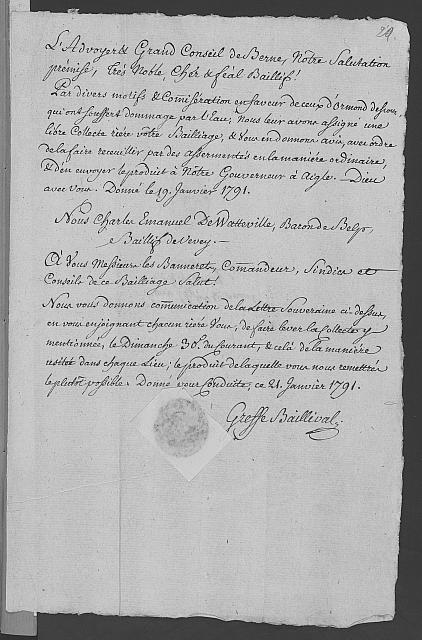 24.
L'Advoyer & Grand Conseil de Berne, Nôtre Salutation
prémise, Très Noble, Cher & féal Baillif!
Par divers motifs & Comisération en faveur de ceux d'Ormond dessous
qui ont souffert dommage par l'eau; Nous leur avons assigné une
libre Collecte riére vôtre Bailliage, & Vous en donnons avis, avec ordre
de la faire receuillir par des assermentés en la maniére ordinaire,
& d'en envoyer le produit à Nôtre Gouverneur à Aigle. Dieu
avec Vous. Donné le 19. Janvier 1791.
Nous Charles Emanuel De Watteville, Baron de Belp,
& Baillif de Vevey. —
A Vous Messieurs les Bannerets, Comandeur, Sindics et
Conseils de ce Bailliage Salut!
Nous vous donnons comunication de la Lettre Souveraine ci-dessus,
en vous enjoignant chacun riére Vous, de faire lever la Collecte y
mentionnée, le Dimanche 30e. du Courant, & celà de la maniére
usitée dans chaque Lieu; le produit de laquelle vous nous remettrés
le plutôt possible. Donné pour Conduitte, ce 21. Janvier 1791.
Greffe Baillival.